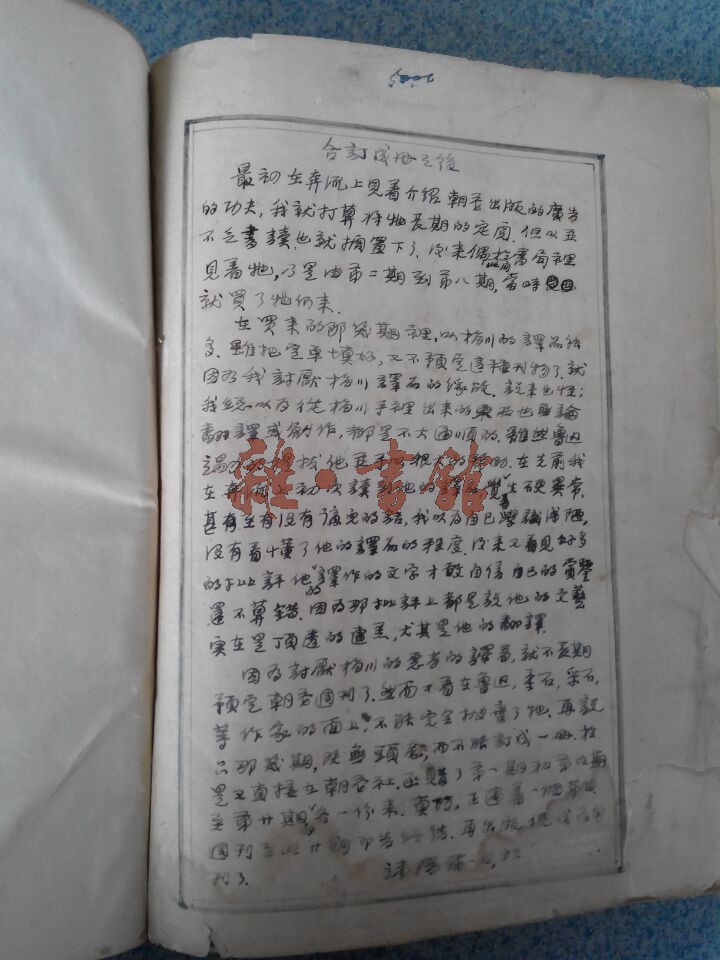 合訂成冊之後
最初在奔流上見着介紹朝花出版的廣告
的功夫，我就打算將牠長期的定閱。但以並
不乏書讀，也就擱置下了。後來偶於書局裡
見着牠，乃是由第二期到第八期，當時
就買了牠們來。
在買來的那幾期裡，以梅川的譯品較
多。雖把定單填好，又不預定這種刊物了。就
因為我討厭梅川譯品的緣故。說來也怪；
我總以為從梅川手裡出來的東西也無論
翻譯或創作，都是不大通順的。雖然魯迅
提拔他 在先前我
在奔流上初次讀到他的譯 覺着生硬異常，
甚有至有沒有了窮的話，我以為自己學識淺陋，
沒有看懂了他的譯品的程度。後來又看見好多
的批評他的譯作的文字才敢自信自己的賞鑒
還不算錯。因為那批評上都是說他的文藝
實在是頂 的 ，尤其是他的翻譯。
因為討厭梅川的 的譯著，就不長期
預定朝花週刊了。然而又看在魯迅，柔石，采石，
等作家的面上，不能完全拋棄了牠。再說
只那幾期，旣無頭 ，而不能訂成一冊。於
是又直接在朝花社，函購了第一期和第九期
至第廿期的各一份來。
週刊至此廿期即告終結。再出 為旬
刊了。
雜·書館